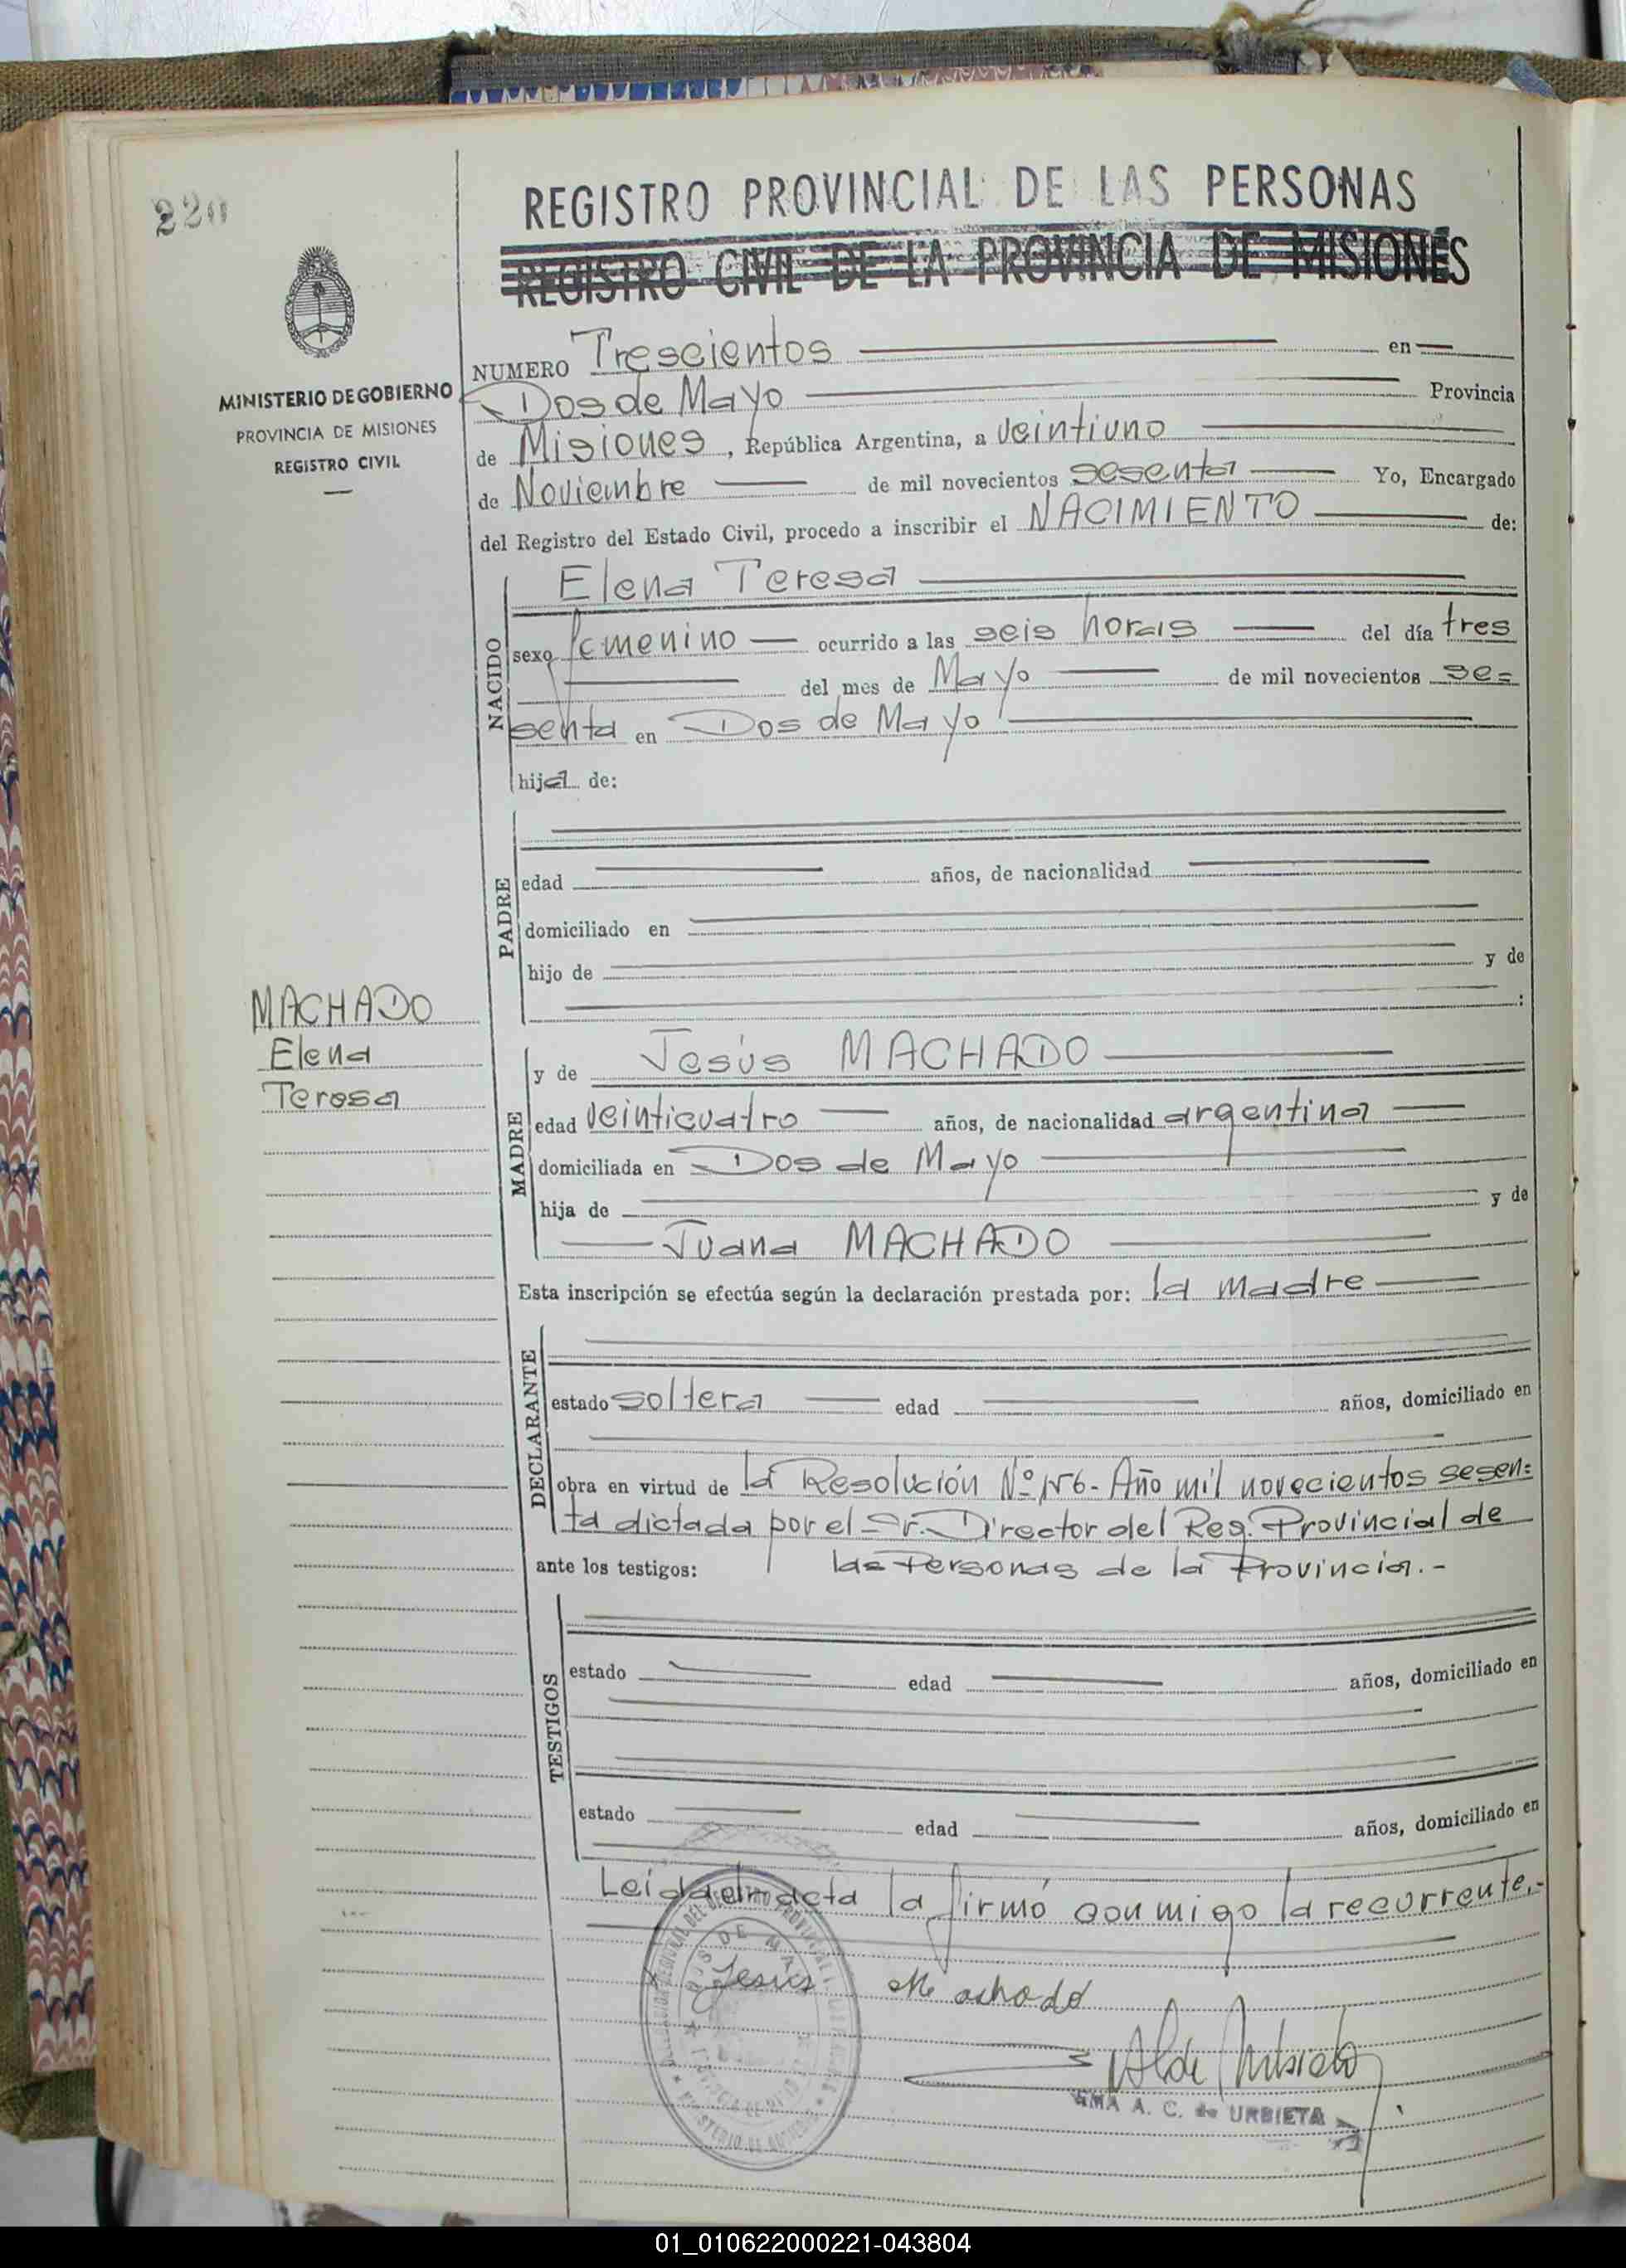 220
REGISTRO PROVINCIAL DE LAS PERSONAS
REGISTRO CIVIL DE LA PROVINCIA DE MISIONES
MINISTERIO DE GOBIERNO
PROVINCIA DE MISIONES
REGISTRO CIVIL
NUMERO Trescientos en
Dos de Mayo Provincia
de Misiones, República Argentina, a veintiuno
de Noviembre de mil novecientos sesenta Yo, Encargado
del Registro del Estado Civil, procedo a inscribir el NACIMIENTO de:
NACIDO
Elena Teresa
sexo femenino ocurrido a las seis horas del día tres
del mes de Mayo de mil novecientos se=
senta en Dos de Mayo
hija de:
PADRE
edad años, de nacionalidad
domiciliado en
hijo de y de
:
MACHADO
Elena
Teresa
MADRE
y de Jesús MACHADO
edad veinticuatro años, de nacionalidad argentina
domiciliada en Dos de Mayo
hija de y de
Juana MACHADO
Esta inscripción se efectúa según la declaración prestada por: la madre
DECLARANTE
estado soltera edad años, domiciliado en
obra en virtud de la Resolución Nº 156- Año mil novecientos sesen=
ta dictada por el Sr. Director del Reg. Provincial de
ante los testigos: las Personas de la Provincia.-
TESTIGOS
estado edad años, domiciliado en
estado edad años, domiciliado en
Leída el acta la firmó conmigo la recurrente.-
Jesús Machado
A. C. de URBIETA
01_010622000221-043804